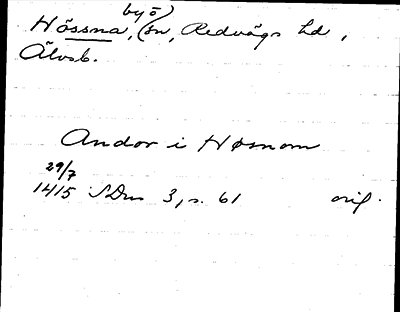 by ö)
Hössna, (sn, Redvägs hd,
Älvsb.
Andor i Høsnom
29/7
1415 SDns 3, s. 61 orig.